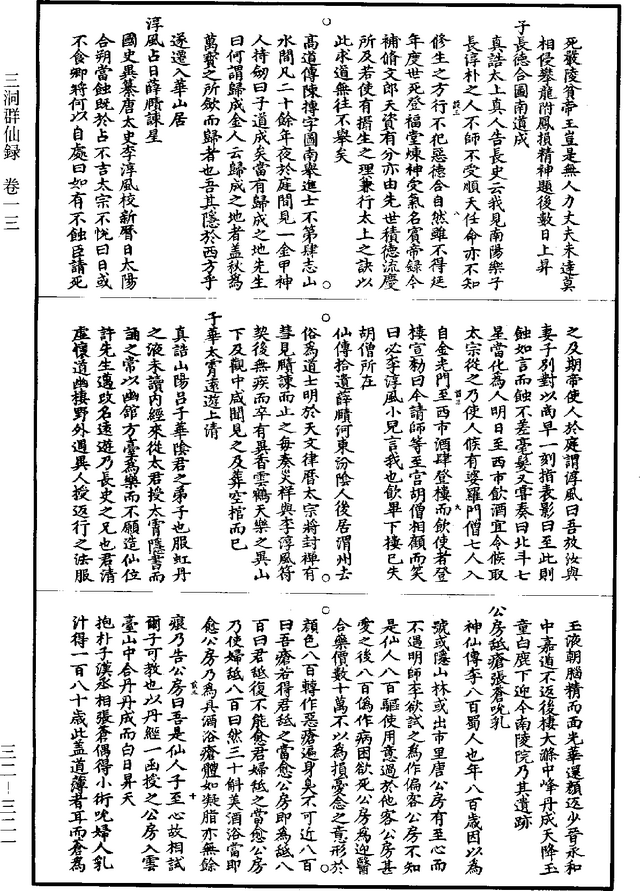 三洞群仙録　卷一三
死嚴陵貧帝王豈是無人力丈夫未達莫
相侵攀龍附鳳損精神題後數日上昇
子長德合圖南道成
真誥太上真人告長史云我見南陽樂子
長淳朴之人不師不受順天任命亦不知
修生之方行不犯惡德合自然雖不得延
年度世死登福堂煉神受氣名賓帝録今
補脩文郎天資有分亦由先世積德流慶
所及若使有攝生之理兼行太上之訣以
此求道無往不舉矣
高道傳陳摶字圖南舉進士不第肆志山
水間凡二十餘年夜於庭間見一金甲神
人持劒曰子道成矣當有歸成之地先生
曰何謂歸成金人云歸成之地者蓋秋為
萬寶之所歛而歸者也吾其隱於西方乎
遂還入華山居
淳風占日薛賾諫星
國史異纂唐太史李淳風校新曆日太陽
合朔當蝕既於占不吉太宗不悦曰日或
不食卿將何以自處曰如有不蝕臣請死
之及期帝使人於庭謂淳風曰吾放汝與
妻子別對以尚早一刻指表影曰至此則
蝕如言而蝕不差毫髮又嘗奏曰北斗七
星當化為人明日至西市飲酒宜令候取
太宗從之乃使人候有婆羅門僧七人入
自金光門至西市酒肆登樓而飲使者登
樓宣勑曰今請師等至宫胡僧相顧而笑
曰必李淳風小兒言我也飲畢下樓已失
胡僧所在
仙傳拾遺薛賾河東汾陰人後居渭州去
俗為道士明於天文律曆太宗將封禪有
彗見賾諫而止之每奏災祥與李淳風符
契後無疾而卒有異香雲鶴天樂之異山
下及觀中咸聞見之及葬空棺而已
子華太霄遠遊上清
真誥山陽呂子華陰君之弟子也服虹丹
之液未讀内經來從太君授太霄隱書而
誦之常以幽館方臺為樂而不願造仙位
許先生邁改名遠遊乃長史之兄也君清
虚懷道幽棲野外遇異人授返行之法服
玉液朝腦精而面光華還顔返少晉永和
中嘉道不返後棲大滌中峰丹成天降玉
童白鹿下迎今南陵院乃其遺跡
公房䑛瘡張蒼吮乳
神仙傳李八百蜀人也年八百歲因以為
號或隱山林或出市里唐公房有至心而
不遇明師李欲試之為作傭客公房不知
是仙人八百驅使用意過於他客公房甚
愛之後八百偽作病困欲死公房為迎醫
合藥價數十萬不以為損憂念之意形於
顔色八百轉作惡瘡遍身臭不可近八百
曰吾瘡若得君䑛之當愈公房即為䑛八
百曰君䑛復不能愈君婦䑛之當愈公房
乃使婦䑛八百曰然三十斛美酒浴當即
愈公房乃為具酒浴瘡體如凝脂亦無餘
痕乃告公房曰吾是仙人子至心故相試
爾子可教也以丹經一函授之公房入雲
臺山中合丹丹成而白日昇天
抱朴子漢丞相張蒼偶得小術吮婦人乳
汁得一百八十歲此蓋道薄者耳而蒼為
三二—三二一